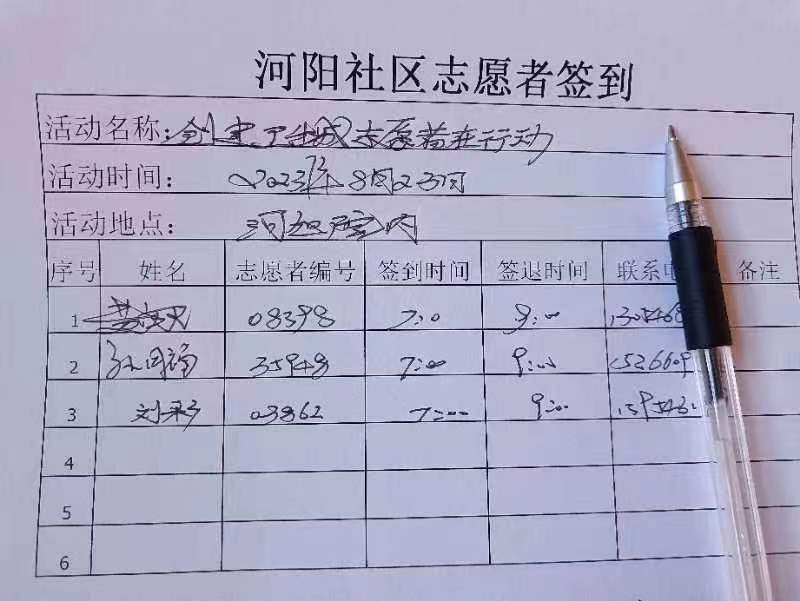 河阳社区志愿者签到
活动名称：创建卫生城志愿者在行动
活动时间： 2023年8月23日
活动地点： 河阳 内
序号 姓名 志愿者编号 签到时间 签退时间 联系电 备注
1 08398 7:0 9:00
2 35948 7:00 9:00 1526609
3 刘彩 03862 7:00 9:00
4
5
6